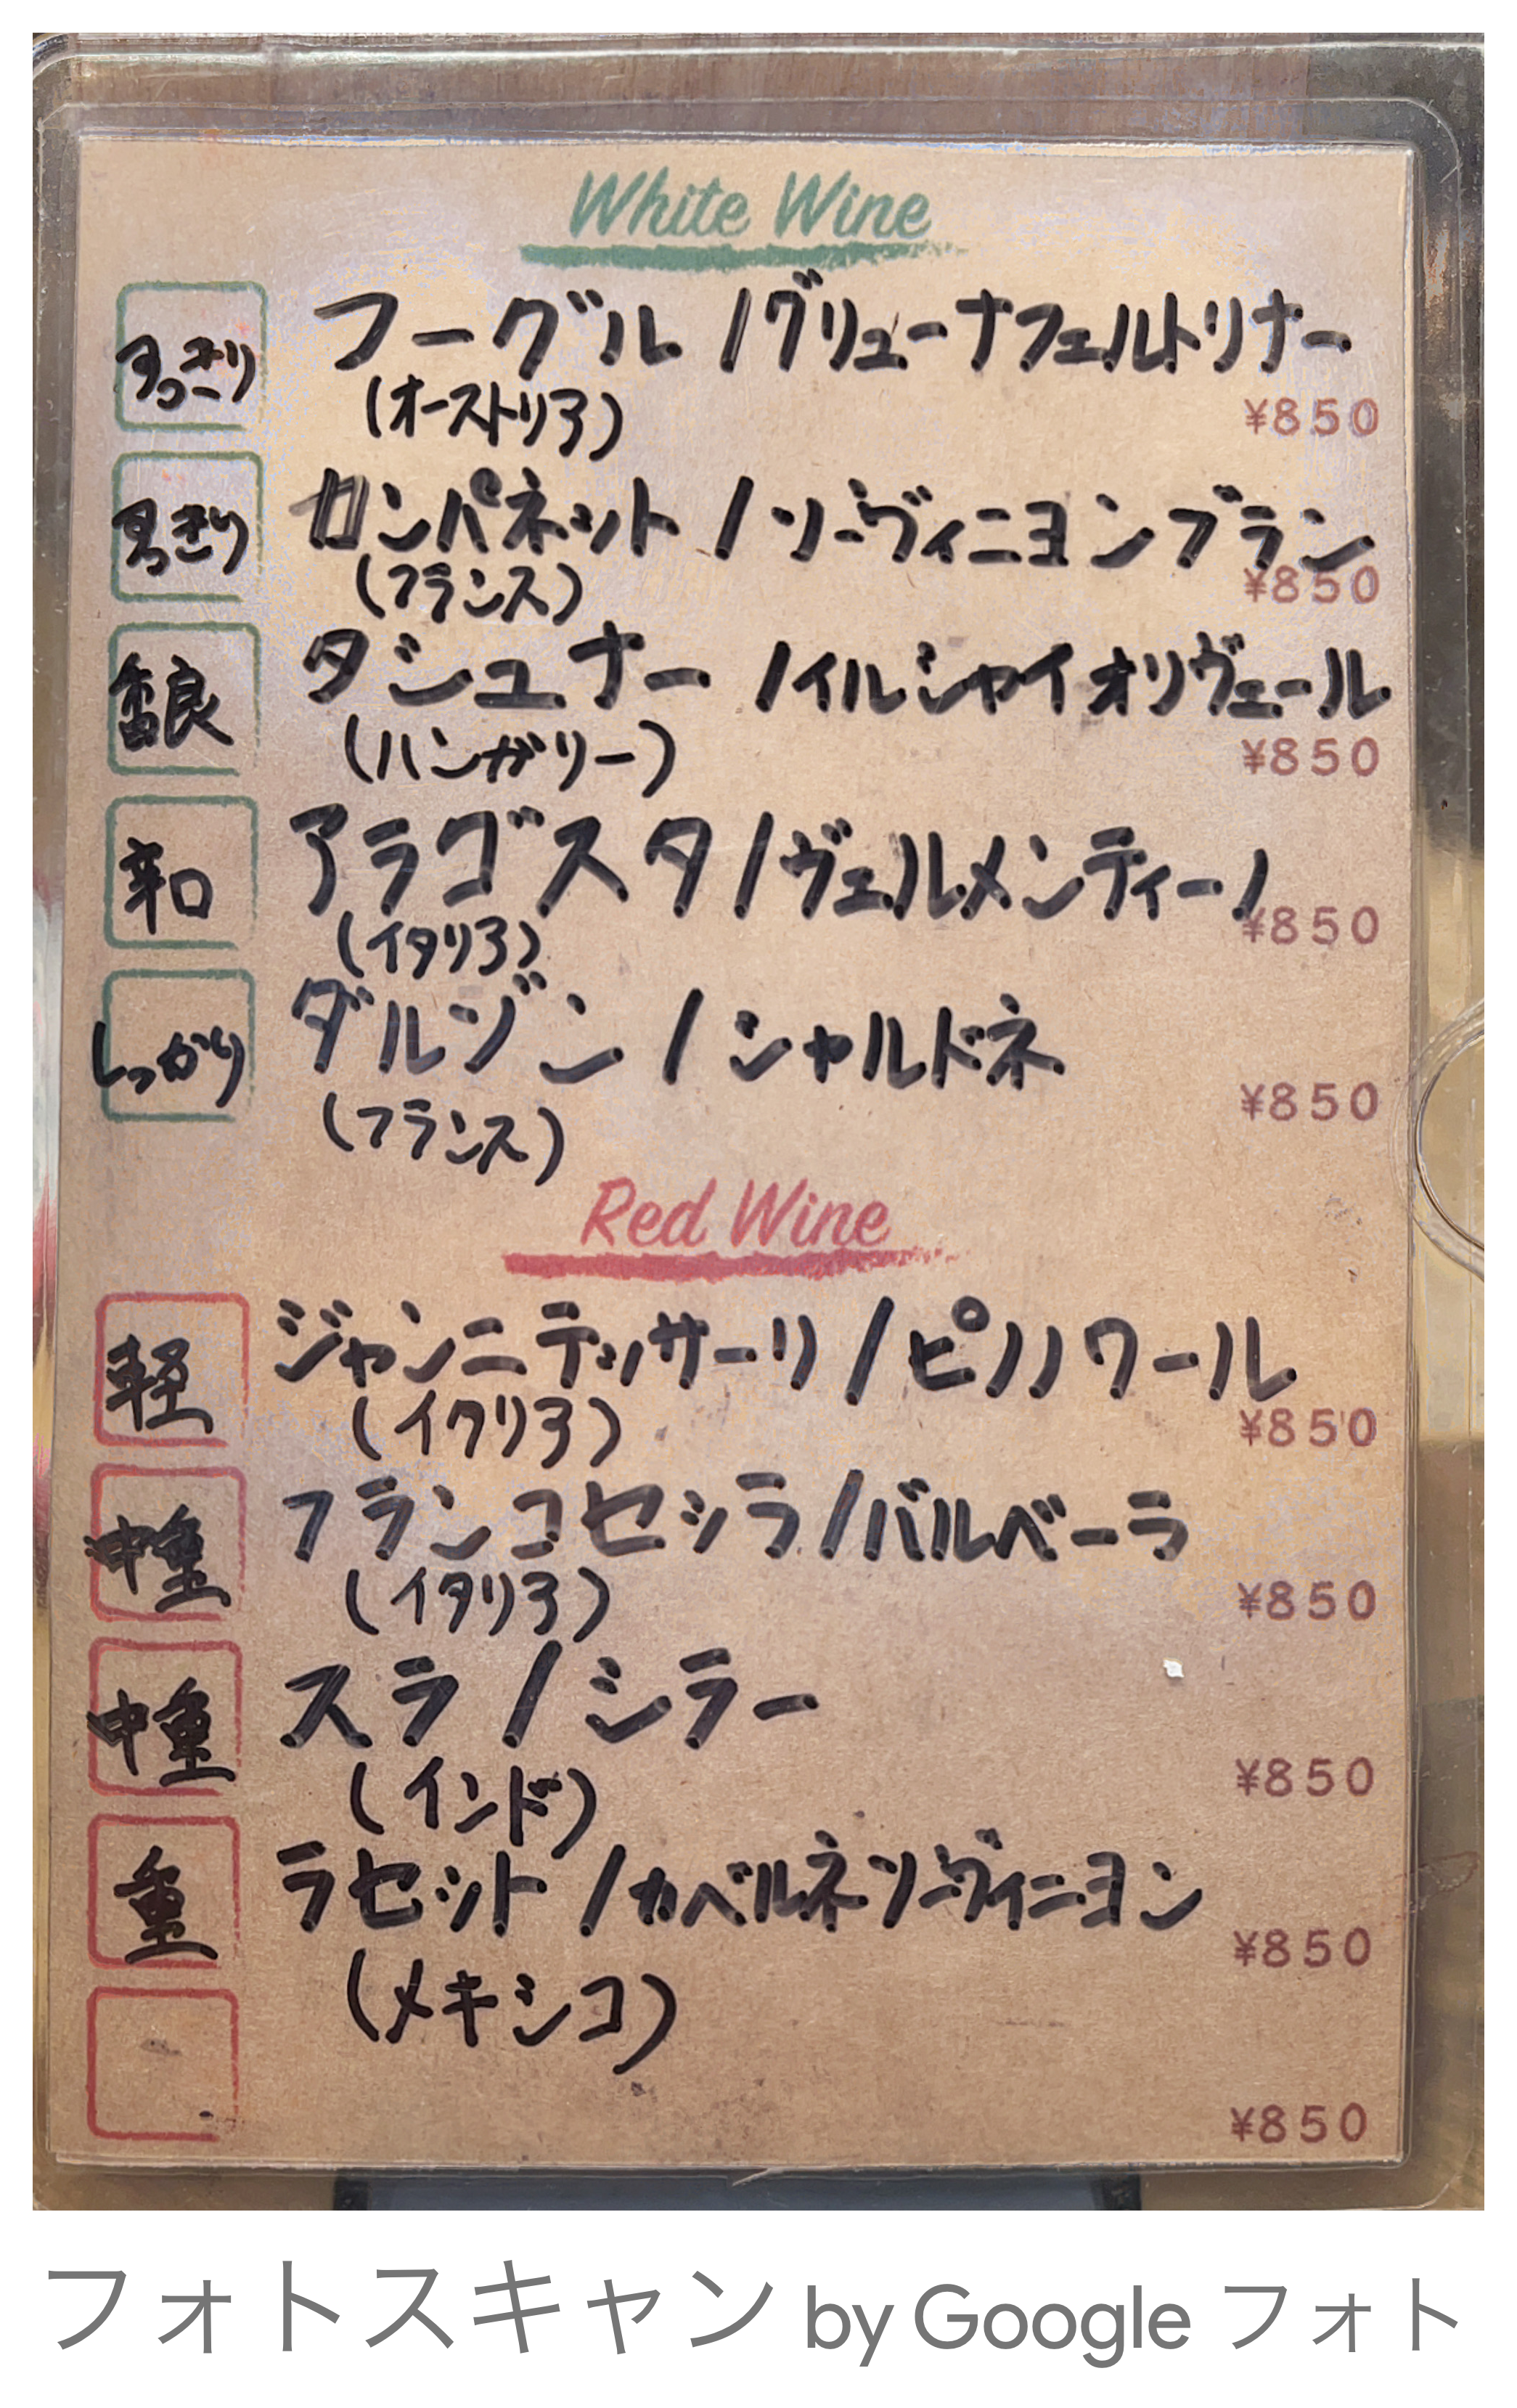 White Wine
すっきり
フーグル /グリューナフェルトリナー
(オーストリア)
¥850
すっきり
カンパネット /ソーヴィニヨンブラン
(フランス)
¥850
香良
タシュナー /イルシャイオリヴェール
(ハンガリー)
¥850
辛口
アラゴスタ/ヴェルメンティーノ
(イタリア)
¥850
しっかり
ダルゾン / シャルドネ
(フランス)
¥850
Red Wine
軽
ジャンニテッサーリ / ピノノワール
(イタリア)
¥850
中重
フランコセッラ/バルベーラ
(イタリア)
¥850
中重
スラ / シラー
(インド)
¥850
重
ラセット /カベルネソーヴィニヨン
(メキシコ)
¥850
¥850
フォトスキャン by Google フォト